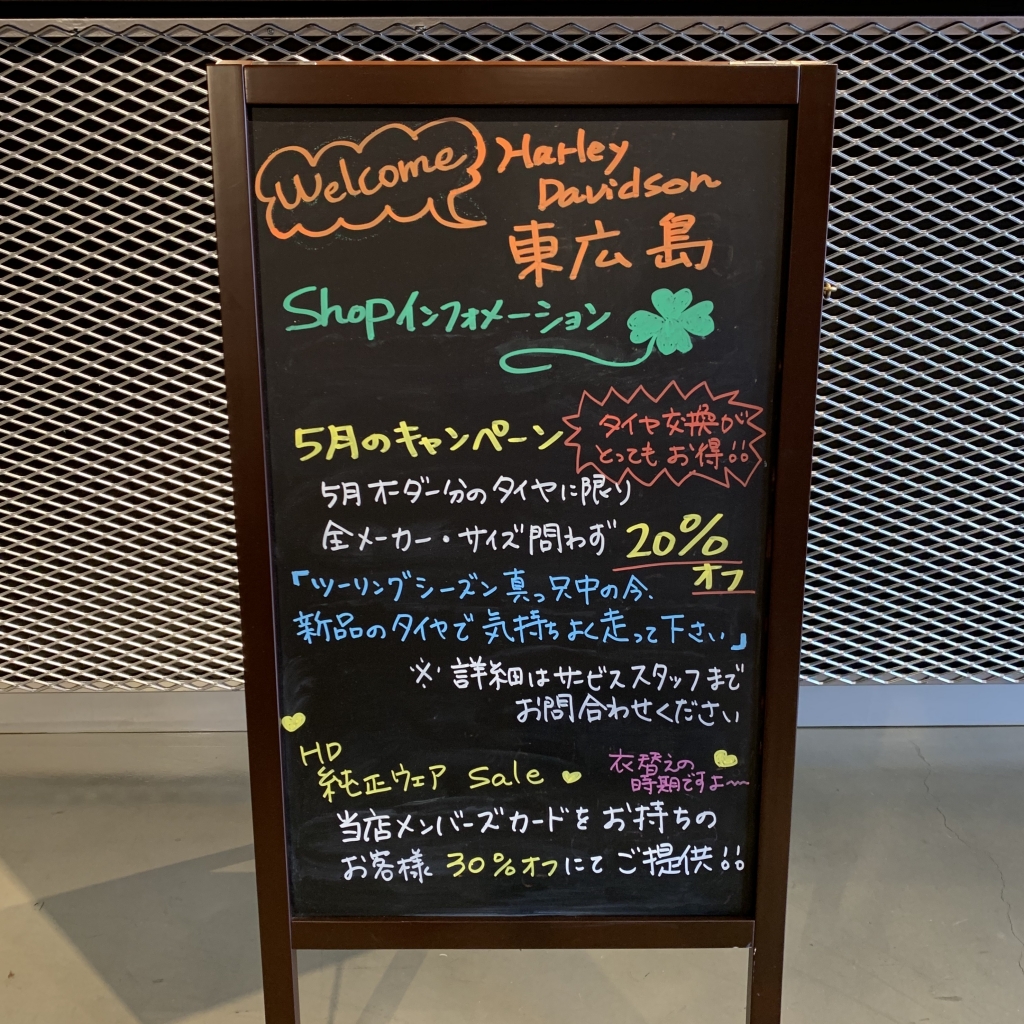 Welcome
Harley
Davidson
東広島
Shopインフォメーション
5月のキャンペーン
タイヤ交換が
とってもお得!!
5月オーダー分のタイヤに限り
全メーカー・サイズ問わず 20%
オフ
「ツーリングシーズン真っ只中の今、
新品のタイヤで気持ちよく走って下さい」
※詳細はサービススタッフまで
お問合わせください
HD
純正ウェア Sale
衣替えの
時期ですよ〜
当店メンバーズカードをお持ちの
お客様 30%オフにてご提供!!